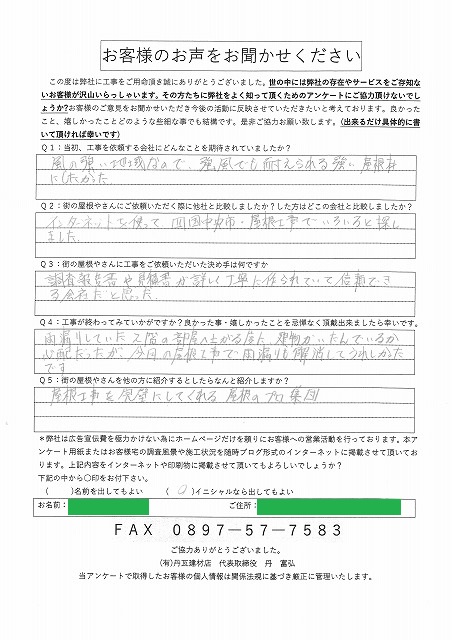 お客様のお声をお聞かせください
この度は弊社に工事をご用命頂き誠にありがとうございました。世の中には弊社の存在やサービスをご存知な
いお客様が沢山いらっしゃいます。その方たちに弊社をよく知って頂くためのアンケートにご協力頂けないでし
ょうか?お客様のご意見をお聞かせいただき今後の活動に反映させていただきたいと考えております。良かった
こと、嬉しかったことどのような些細な事でも結構です。是非ご協力お願い致します。(出来るだけ具体的に書
いて頂ければ幸いです)
Q1:当初、工事を依頼する会社にどんなことを期待されていましたか?
風の強い地域なので、強風でも耐えられる強い屋根材
にしたかった
Q2:街の屋根やさんにご依頼いただく際に他社と比較しましたか?した方はどこの会社と比較しましたか?
インターネットを使って、四国中央市・屋根工事でいろいろと探し
ました。
Q3:街の屋根やさんに工事をご依頼いただいた決め手は何ですか
調査報告書や見積書が詳しく丁寧に作られていて信頼でき
る会社だと思った。
Q4:工事が終わってみていかがですか?良かった事・嬉しかったことを忌憚なく頂戴出来ましたら幸いです。
雨漏りしていた2階の部屋へ上がる度に、建物がいたんでいるか
心配だったが、今回の屋根工事で雨漏りも解消してうれしかった
です
Q5:街の屋根やさんを他の方に紹介するとしたらなんと紹介しますか?
屋根工事を完璧にしてくれる屋根のプロ集団
*弊社は広告宣伝費を極力かけない為にホームページだけを頼りにお客様への営業活動を行っております。本ア
ンケート用紙またはお客様宅の調査風景や施工状況を随時ブログ形式のインターネットに掲載させて頂いてお
ります。上記内容をインターネットや印刷物に掲載させて頂いてもよろしいでしょうか?
下記の中から〇印をお付下さい。
( )名前を出してもよい ( 〇 )イニシャルなら出してもよい
お名前: ご住所:
FAX 0897-57-7583
ご協力ありがとうございました。
(有)丹瓦建材店 代表取締役 丹 富弘
当アンケートで取得したお客様の個人情報は関係法規に基づき厳正に管理いたします。